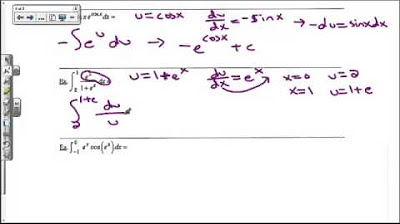 e^{cosx} dx = u = cosx du/dx = -sinx → -du = sinxdx
-∫e^u du → -e^{cosx} + c
Ex. ∫ e^x/(1+e^x) dx = u = 1+e^x du/dx = e^x x=0 u=2
x=1 u=1+e
∫_2^{1+e} du/u
Ex. ∫_{-1}^{0} e^x cos(e^x) dx =